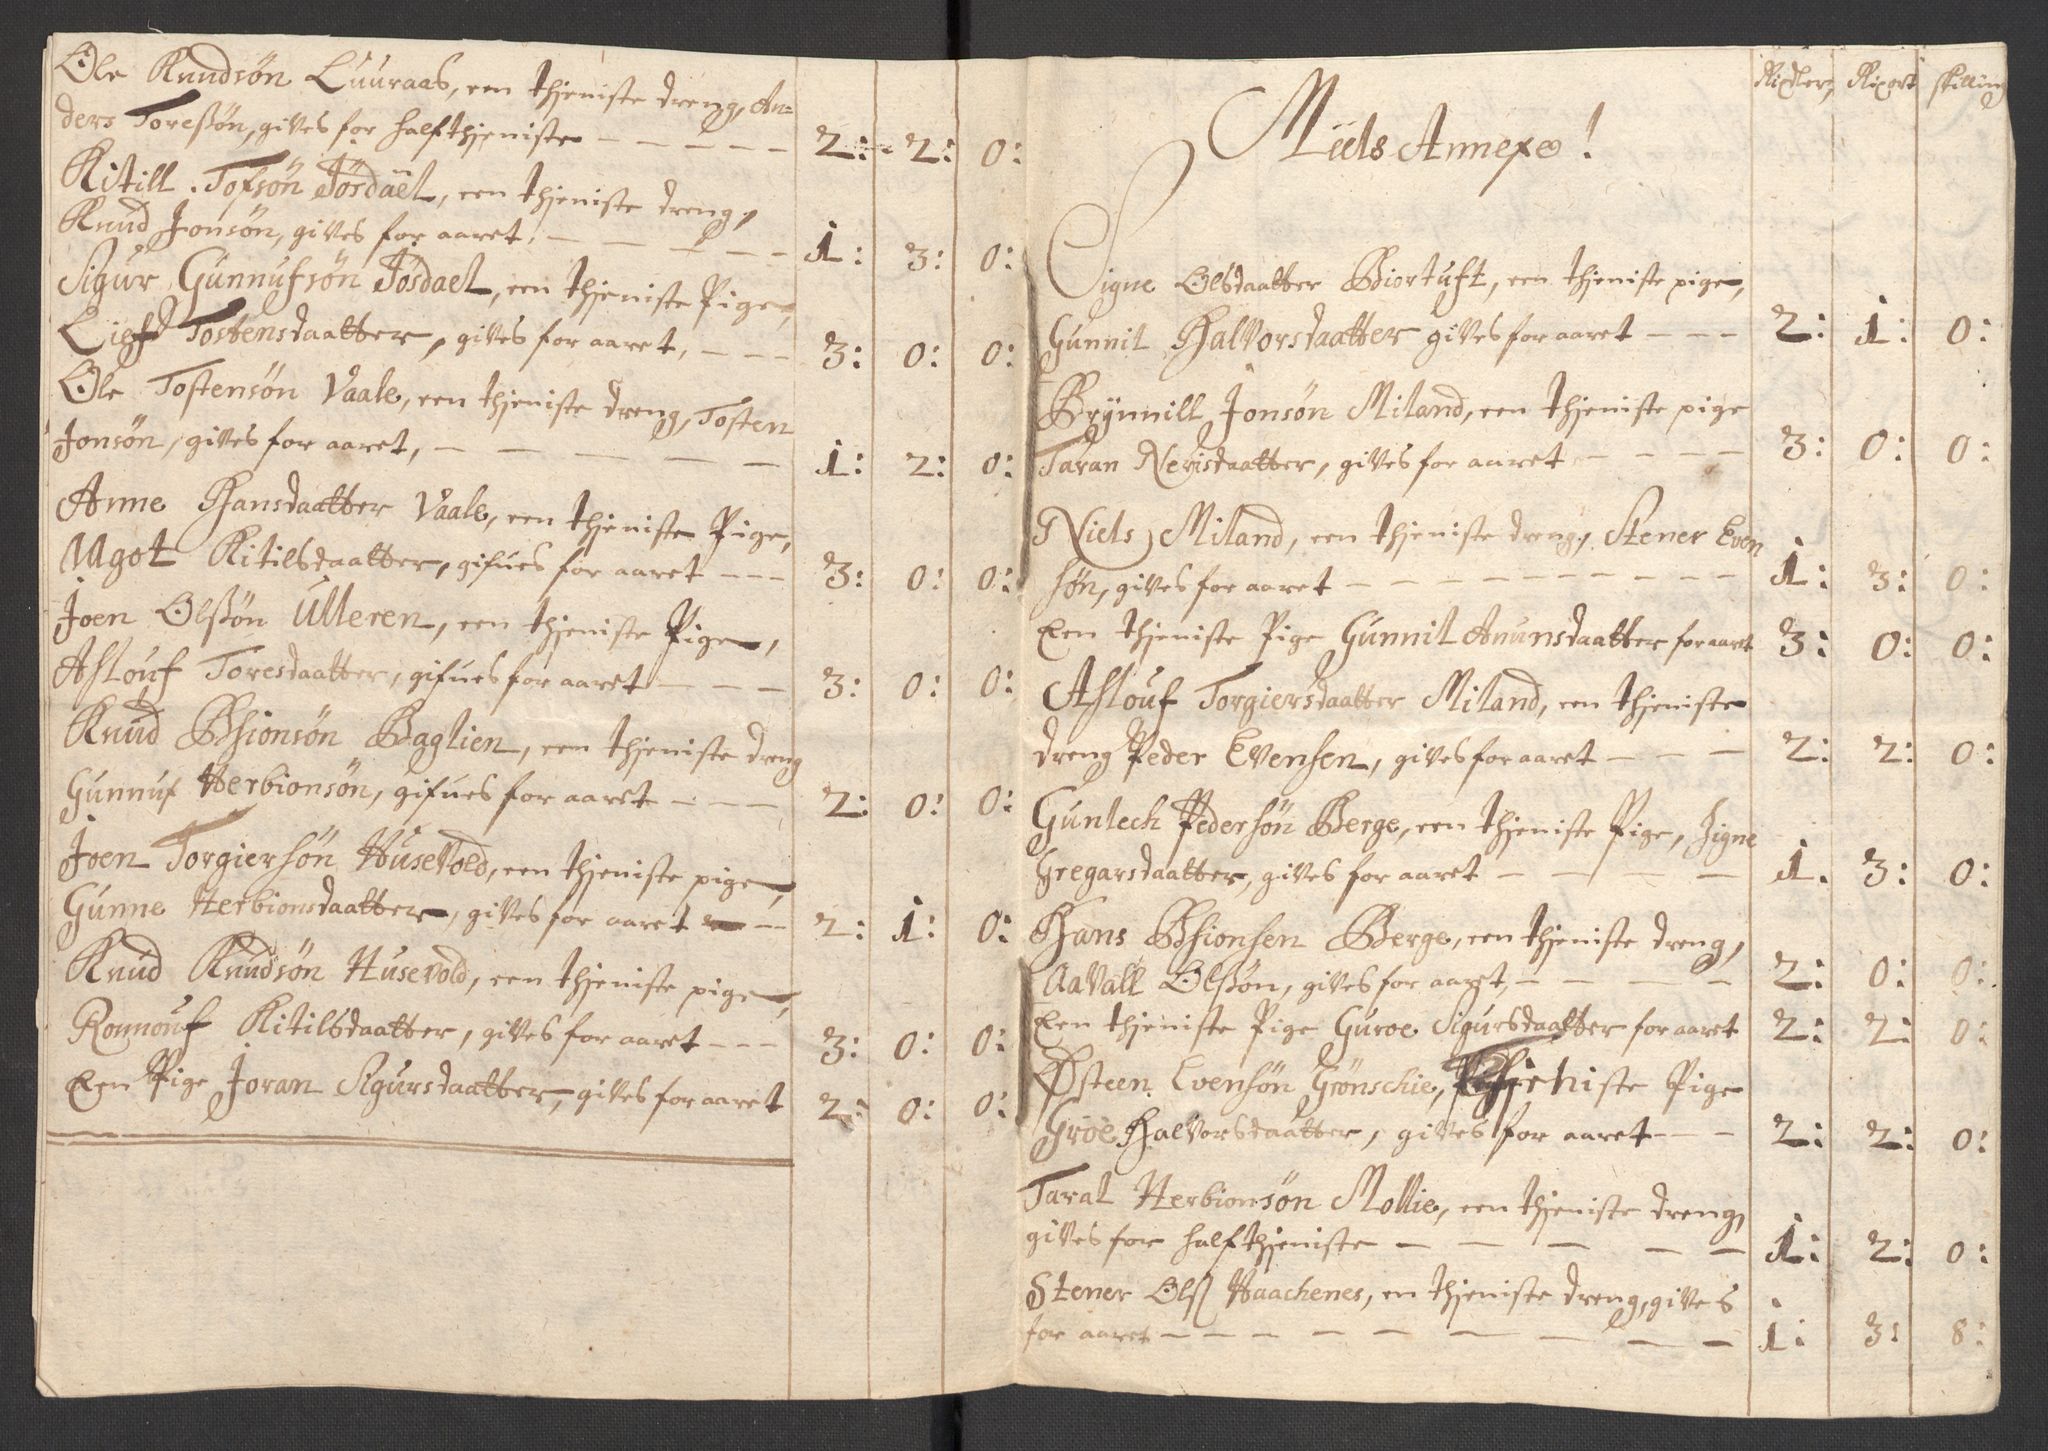 Ole Knudsøn Luuraas, een thjeniste dreng, An-
ders Toreßøn, gives for half thjeniste 2: 2: 0:
Kitill Tofsøn Jösdael, een thjeniste dreng,
Knud Jonsøn, gives for aaret, 1: 3: 0:
Sigur Gunnufsön Jösdael, een thjeniste Pige,
Tostensdaatter, gives for aaret, 3: 0: 0:
Ole Tostensøn Vaale, een thjeniste dreng, Tosten
Jonsøn, gives for aaret, 1: 2: 0:
Anne Hansdaatter Vaale, een thjeniste Pige,
Ugot Kitilsdaatter, gifues for aaret 3: 0: 0:
Joen Olßön Ulleren, een thjeniste Pige,
Aslouf Toresdaatter, gifues for aaret 3: 0: 0:
Knud Bhionsön Baglien, een thjeniste dreng
Gunnuf Herbionsøn, gifues for aaret 2: 0: 0:
Joen Torgiersön Husevold, een thjeniste pige,
Gunne Herbionsdaatter, gives for aaret 2: 1: 0:
Knud Knudsøn Husevold, een thjeniste pige,
Ronnouf Kitilsdaatter, gives for aaret 3: 0: 0:
Een Pige Joran Sigursdaatter, gives for aaret 2: 0: 0:
Rixdler, Rixort skilling
Miels Annexe!
Signe Olsdaatter Biortuft, een thjeniste pige,
Gunnil Halvorsdaatter gives for aaret 2: 1: 0:
Brynnill Jonsøn Miland, een thjeniste pige
Taran Nerisdaatter, gives for aaret 3: 0: 0:
Niels Miland, een thjeniste dreng, Stener Even
søn, gives for aaret 1: 3: 0:
Een thjeniste Pige Gunnil Anunsdaatter for aaret 3: 0: 0:
Aslouf Torgiersdaatter Miland, een thjeniste
dreng Peder Evensen, gives for aaret 2: 2: 0:
Gunlech Pedersön Berge, een thjeniste Pige, Signe
Gregarsdaatter, gives for aaret 1. 3: 0:
Hans Bhionsen Berge, een thjeniste dreng,
Aavall Olßön, gives for aaret, 2: 0: 0:
Een thjeniste Pige Guroe Sigursdaatter for aaret 2: 2: 0:
Østeen Evensön Grönschie, thjeniste Pige
Gröe Halvorsdaatter, gives for aaret 2: 2: 0:
Taral Herbionsön Mollie, een thjeniste dreng,
gives for half thjeniste 1: 2: 0:
Stener Olß Haachenes, en thjeniste dreng, gives
for aaret 1: 3: 8: